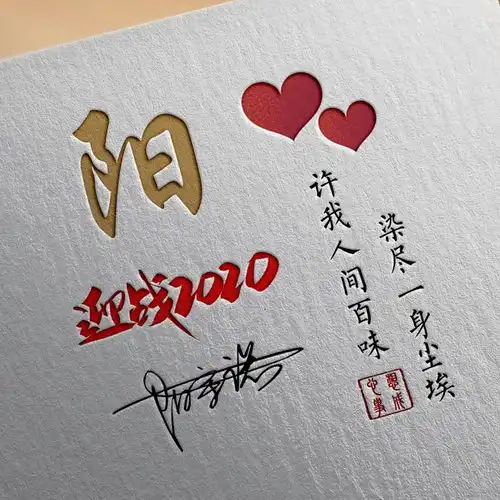 阳
迎战2020
染尽一身尘埃
许我人间百味
心想事成